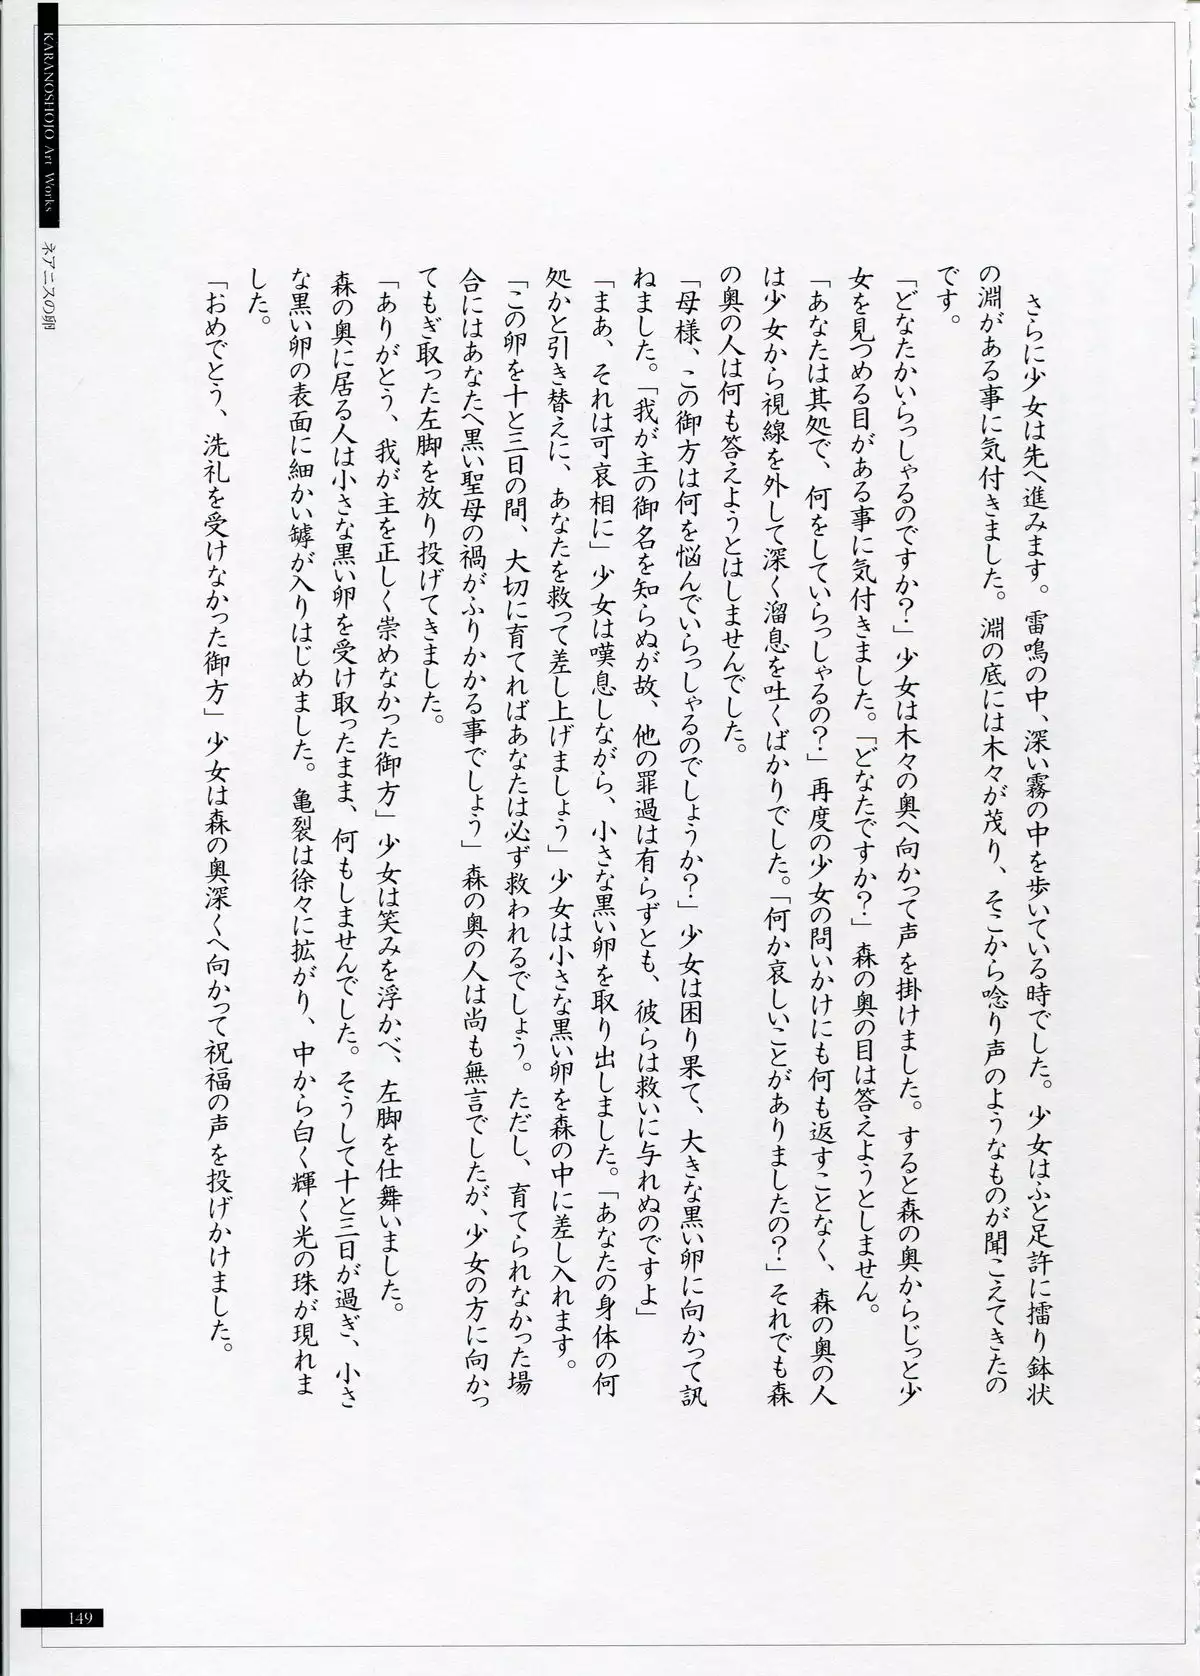 KARANOSHOJO Art Works
ネアニスの卵
さらに少女は先へ進みます。雷鳴の中、深い霧の中を歩いている時でした。少女はふと足許に擂り鉢状
の淵がある事に気付きました。淵の底には木々が茂り、そこから唸り声のようなものが聞こえてきたの
です。
「どなたかいらっしゃるのですか？」少女は木々の奥へ向かって声を掛けました。すると森の奥からじっと少
女を見つめる目がある事に気付きました。「どなたですか？」森の奥の目は答えようとしません。
「あなたは其処で、何をしていらっしゃるの？」再度の少女の問いかけにも何も返すことなく、森の奥の人
は少女から視線を外して深く溜息を吐くばかりでした。「何か哀しいことがありましたの？」それでも森
の奥の人は何も答えようとはしませんでした。
「母様、この御方は何を悩んでいらっしゃるのでしょうか？」少女は困り果て、大きな黒い卵に向かって訊
ねました。「我が主の御名を知らぬが故、他の罪過は有らずとも、彼らは救いに与れぬのですよ」
「まあ、それは可哀相に」少女は嘆息しながら、小さな黒い卵を取り出しました。「あなたの身体の何
処かと引き替えに、あなたを救って差し上げましょう」少女は小さな黒い卵を森の中に差し入れます。
「この卵を十と三日の間、大切に育てればあなたは必ず救われるでしょう。ただし、育てられなかった場
合にはあなたへ黒い聖母の禍がふりかかる事でしょう」森の奥の人は尚も無言でしたが、少女の方に向かっ
てもぎ取った左脚を放り投げてきました。
「ありがとう、我が主を正しく崇めなかった御方」少女は笑みを浮かべ、左脚を仕舞いました。
森の奥に居る人は小さな黒い卵を受け取ったまま、何もしませんでした。そうして十と三日が過ぎ、小さ
な黒い卵の表面に細かい罅が入りはじめました。亀裂は徐々に拡がり、中から白く輝く光の珠が現れま
した。
「おめでとう、洗礼を受けなかった御方」少女は森の奥深くへ向かって祝福の声を投げかけました。
149